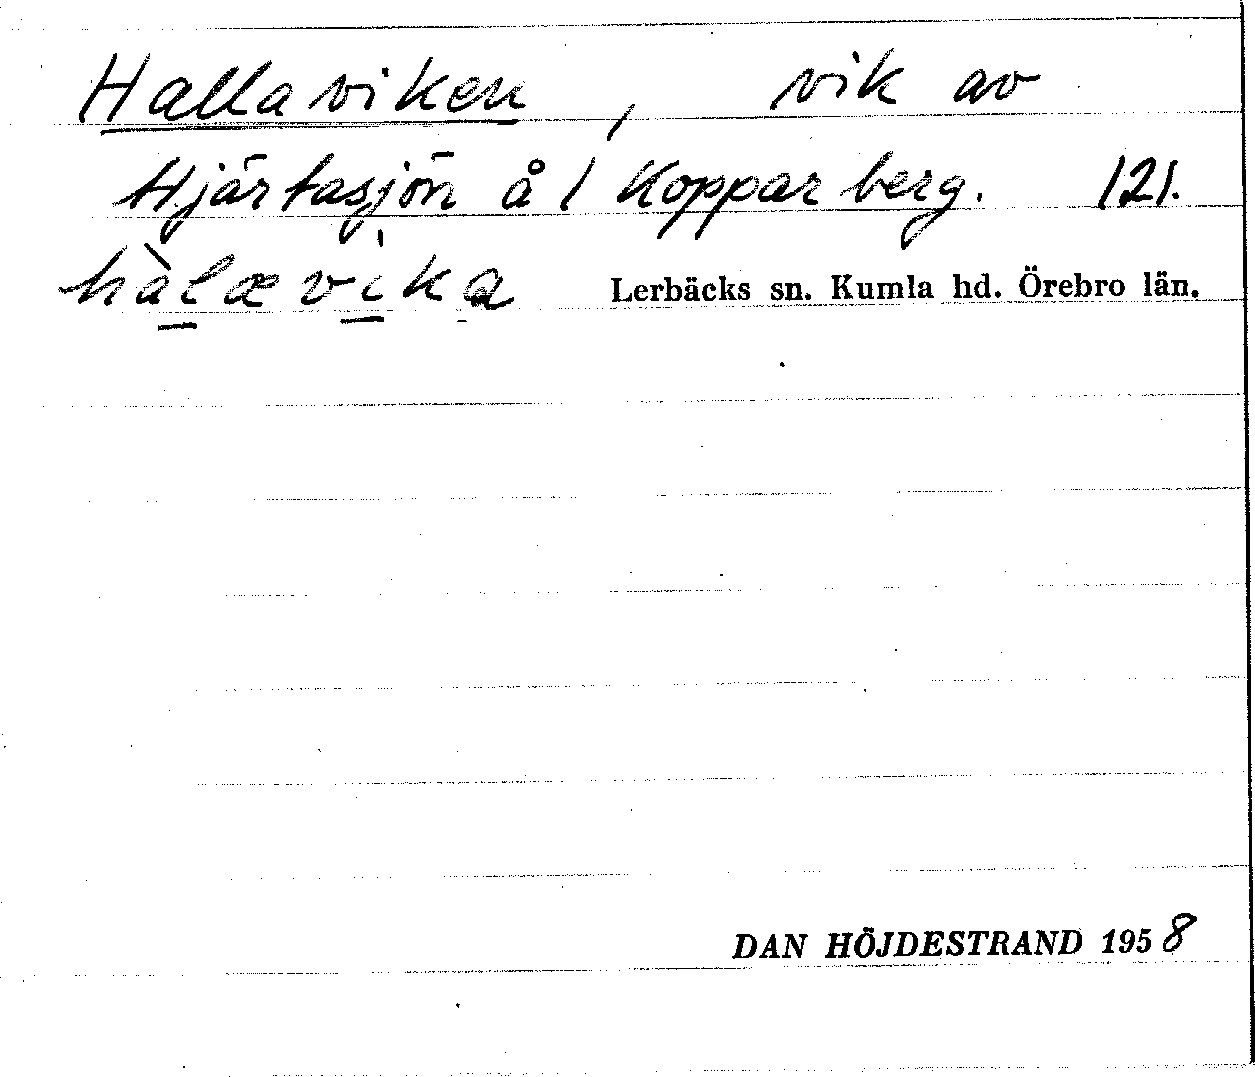 Hallaviken, vik av
Hjärtasjön å 1 Kopparberg. 121.
hàlævika Lerbäcks sn. Kumla hd. Örebro län.
DAN HÖJDESTRAND 1958